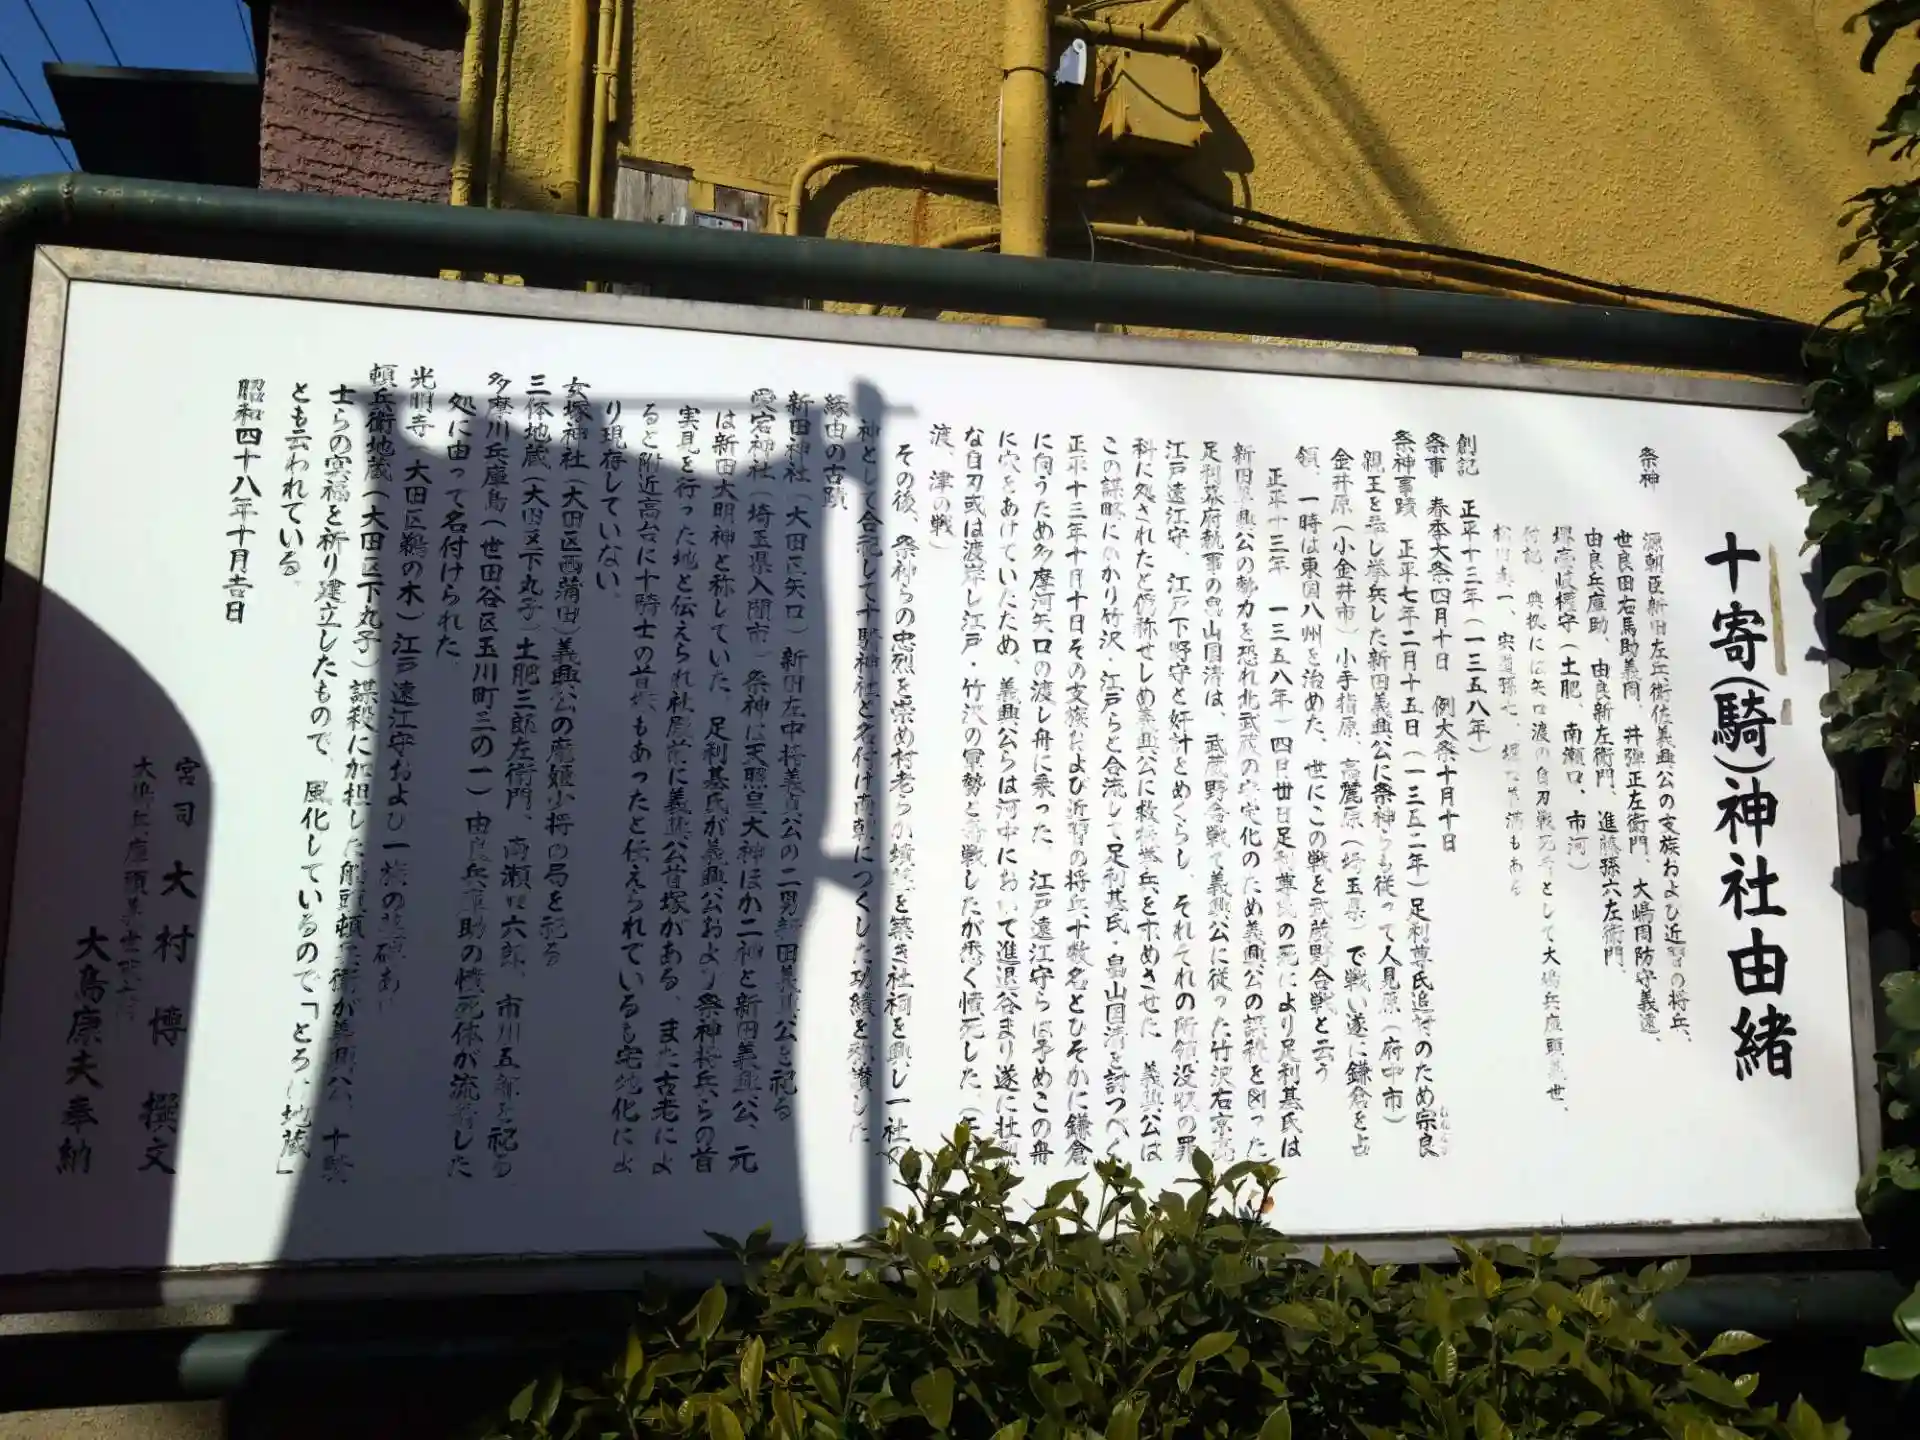 十寄(騎)神社由緒
祭神
源朝臣新田左兵衛佐義興公の支族および近習の将兵、
世良田右馬助義周、井弾正左衛門、大嶋周防守義遠、
由良兵庫助、由良新左衛門、進藤孫六左衛門、
堺壱岐権守(土肥、南瀬口、市河)
付記、典拠には矢口渡の自刃戦死者として大嶋兵庫頭義世、
もある
創記 正平十三年(一三五八年)
祭事 春季大祭四月十日 例大祭十月十日
祭神事蹟 正平七年二月十五日(一三五二年)足利尊氏追討のため宗良
親王を奉じ挙兵した新田義興公に祭神らも従って人見原(府中市)
金井原(小金井市)小手指原、高麗原(埼玉県)で戦い遂に鎌倉を占
領、一時は東国八州を治めた、世にこの戦を武蔵野合戦と云う
正平十三年(一三五八年)四日卅日足利尊氏の死により足利基氏は
新田義興公の勢力を恐れ北武蔵の安定化のため義興公の謀殺を図った
足利幕府執事の畠山国清は、武蔵野合戦で義興公に従った竹沢右京亮
江戸遠江守、江戸下野守と奸計をめぐらし、それぞれの所領没収の罪
科に処されたと偽称せしめ義興公に救援挙兵を求めさせた 義興公は
この謀略にかかり竹沢・江戸らと合流して足利基氏・畠山国清を討つべく
正平十三年十月十日その支族および近習の将兵十数名とひそかに鎌倉
に向うため多摩河矢口の渡し舟に乗った、江戸遠江守らは予めこの舟
に穴をあけていたため、義興公らは河中において進退谷まり遂に壮烈
な自刃或は渡岸し江戸・竹沢の軍勢と奮戦したが悉く憤死した、(矢口
渡、津の戦)
その後、祭神らの忠烈を崇め村老らが墳墓を築き社祠を興し一社の
神として合祀して十騎神社と名付け南朝につくした功績を称讃した
縁由の古蹟
新田神社(大田区矢口)新田左中将義貞公の二男新田義興公を祀る
愛宕神社(埼玉県入間市)祭神は天照皇大神ほか二神と新田義興公、元
は新田大明神と称していた、足利基氏が義興公および祭神将兵らの首
実見を行った地と伝えられ社殿前に義興公首塚がある、また古老によ
ると附近高台に十騎士の首塚もあったと伝えられているも宅地化によ
り現存していない、
女塚神社(大田区西蒲田)義興公の寵姫少将の局を祀る
三体地蔵(大田区下丸子)土肥三郎左衛門、南瀬口六郎、市川五郎を祀る
多摩川兵庫島(世田谷区玉川町三の一)由良兵庫助の憤死体が流着した
処に由って名付けられた、
光明寺(大田区鵜の木)江戸遠江守および一族の墓碑あり
頓兵衛地蔵(大田区下丸子)謀殺に加担した船頭頓兵衛が義興公、十騎
士らの冥福を祈り建立したもので、風化しているので「とろけ地蔵」
とも云われている、
昭和四十八年十月吉日
宮司 大村 博 撰文
大嶋兵庫頭義世
大島康夫奉納